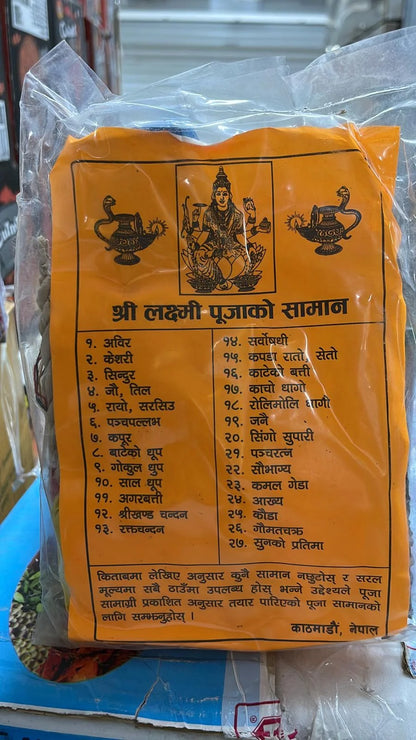 श्री लक्ष्मी पूजाको सामान
१. अविर
२. केशरी
३. सिन्दुर
४. जौ, तिल
५. रायो, सरसिउ
६. पञ्चपल्लभ
७. कपूर
८. बाटेको धूप
९. गोकुल धुप
१०. साल धूप
११. अगरबत्ती
१२. श्रीखण्ड चन्दन
१३. रक्तचन्दन
१४. सर्वोषधी
१५. कपडा रातो, सेतो
१६. काटेको बत्ती
१७. काचो धागो
१८. रोलिमोलि धागी
१९. जनै
२०. सिंगो सुपारी
२१. पञ्चरत्न
२२. सौभाग्य
२३. कमल गेडा
२४. आख्य
२५. कौडा
२६. गौमतचक्र
२७. सुनको प्रतिमा
किताबमा लेखिए अनुसार कुनै सामान नछुटोस् र सरल
मूल्यमा सबै ठाउँमा उपलब्ध होस् भन्ने उद्देश्यले पूजा
सामाग्री प्रकाशित अनुसार तयार पारिएको पूजा सामानको
लागि सम्झनुहोस् ।
काठमाडौं, नेपाल